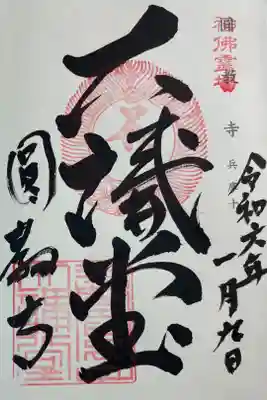 令和六年
一月九日
神佛霊場
圓教寺 兵庫十
大講堂
圓教寺